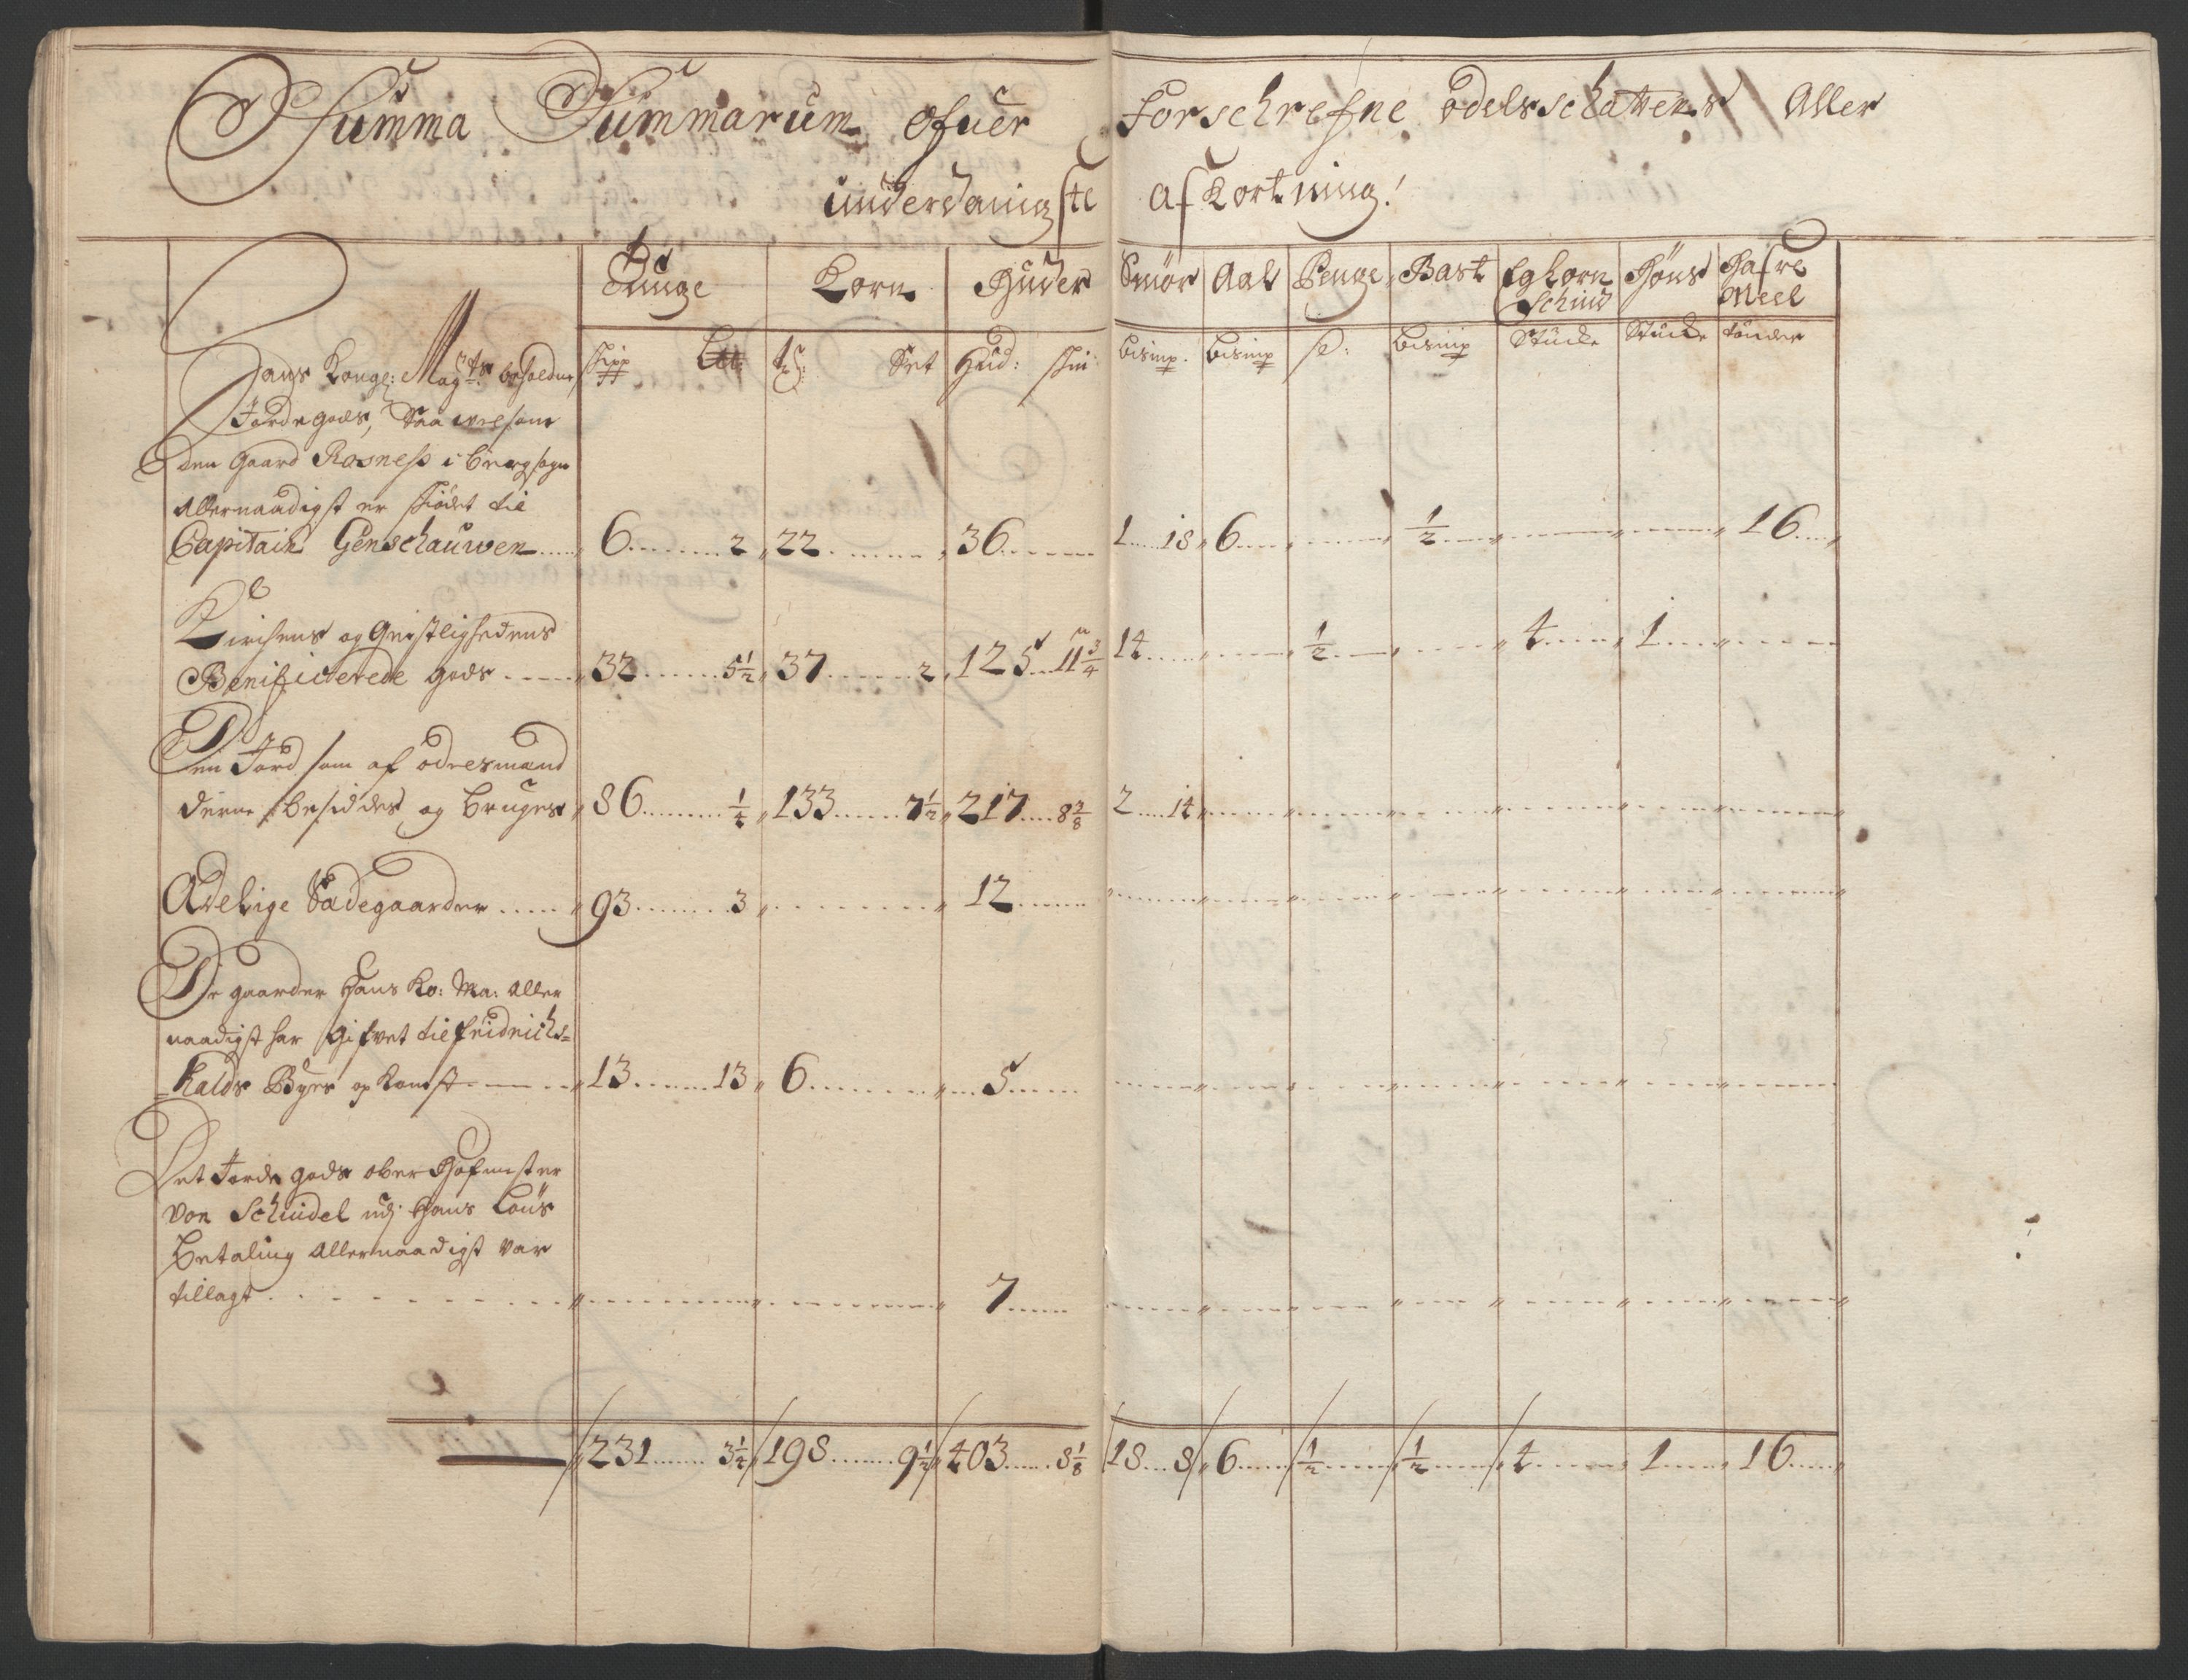 Summa Summarum ofuer forschrefne odelsschattens Aller
underdanigste afkortning!
Tunge Korn Huder Smör Aal Penge Bast Eghorn Schind Höns Hafre Meel
Skipp Set Hud: skin: bismp. bismp bismp Stücke Stücke tönder
Hans Kongl: Maÿts beholdne
Jordegods, Saa velsom
den Gaard Rosness i Bergsogn
Allernaadigst er skiödet til
Capitain Genschauwen 6 2 22 36 1 18 6 1/2 16
Kirchens og Geistlighedens
Benificierede gods 32 5 1/2 37 2 125 11 3/4 14 1/2 4 1
Den Jord som af odelsmænd
derne besiddes og bruges 86 1/4 133 7 1/2 217 8 3/8 2 14
Adelige Sædegaarder 93 3 12
De gaarder Hans Ko: Ma: Aller
naadigst har Gifvet til fridrichs=
=halds Byes opkomst 13 13 6 5
Det Jorde gods ober Hofmester
von Schindel udj Hans Löns
betaling Allernaadigst var
tillagt 7
231 3 1/4 198 9 1/2 403 8 1/8 18 8 6 1/2 1/2 4 1 16